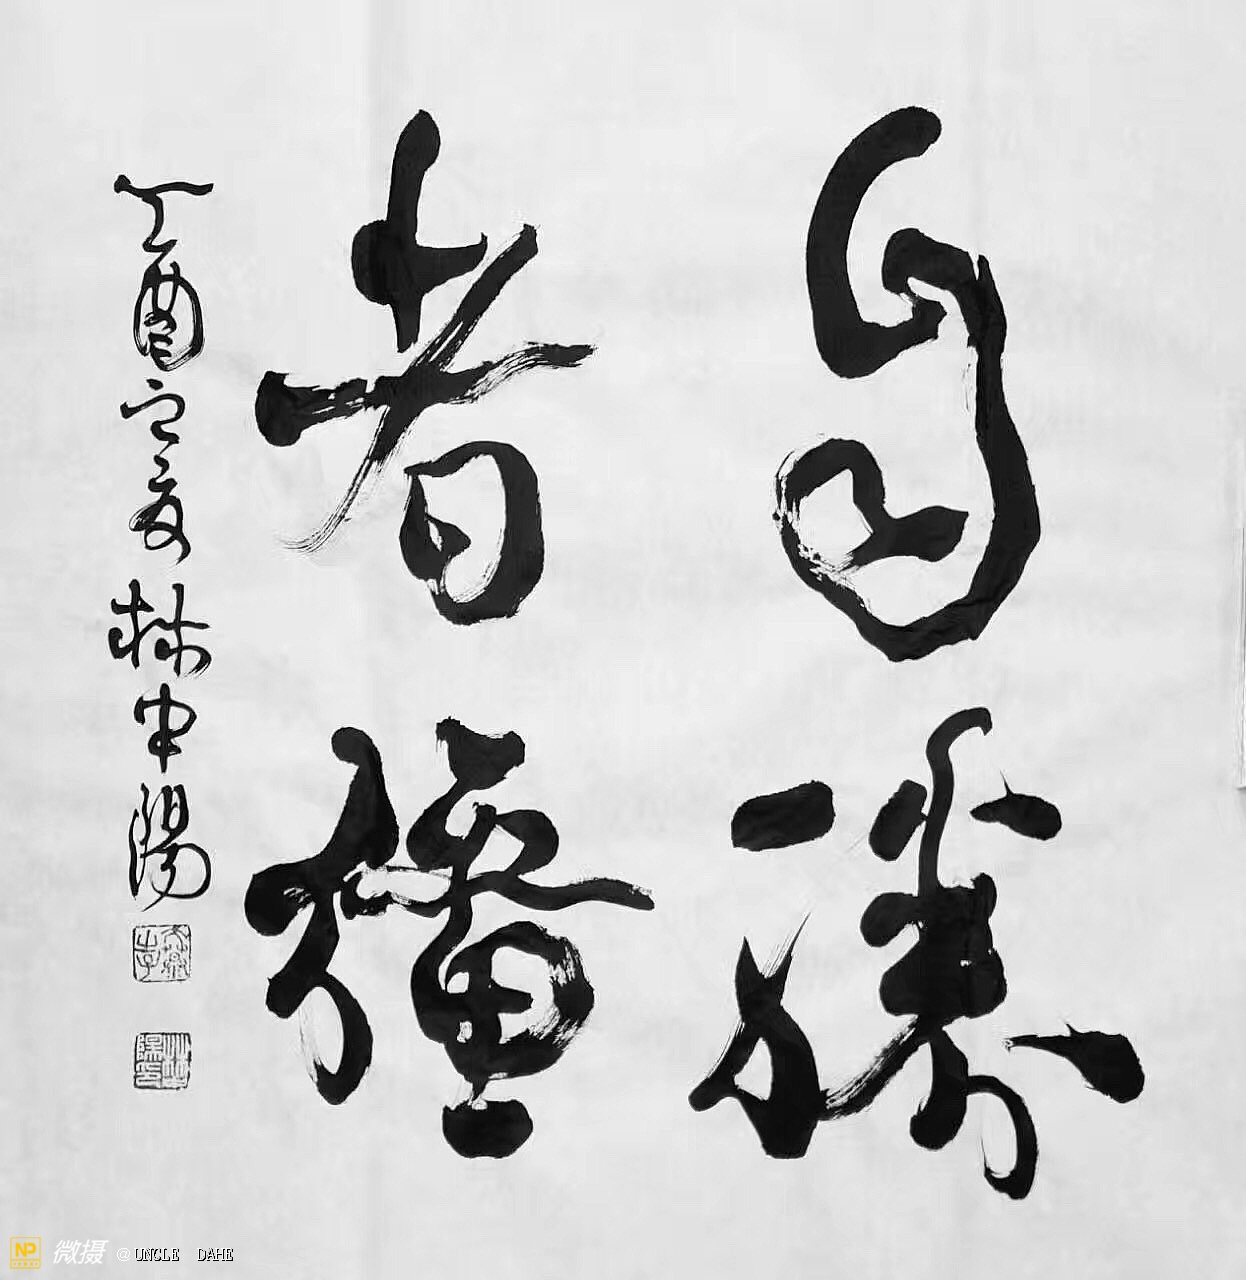 自勝
者彊
丁酉之夏 林中陽
NP 微摄 @UNCLE DAHE